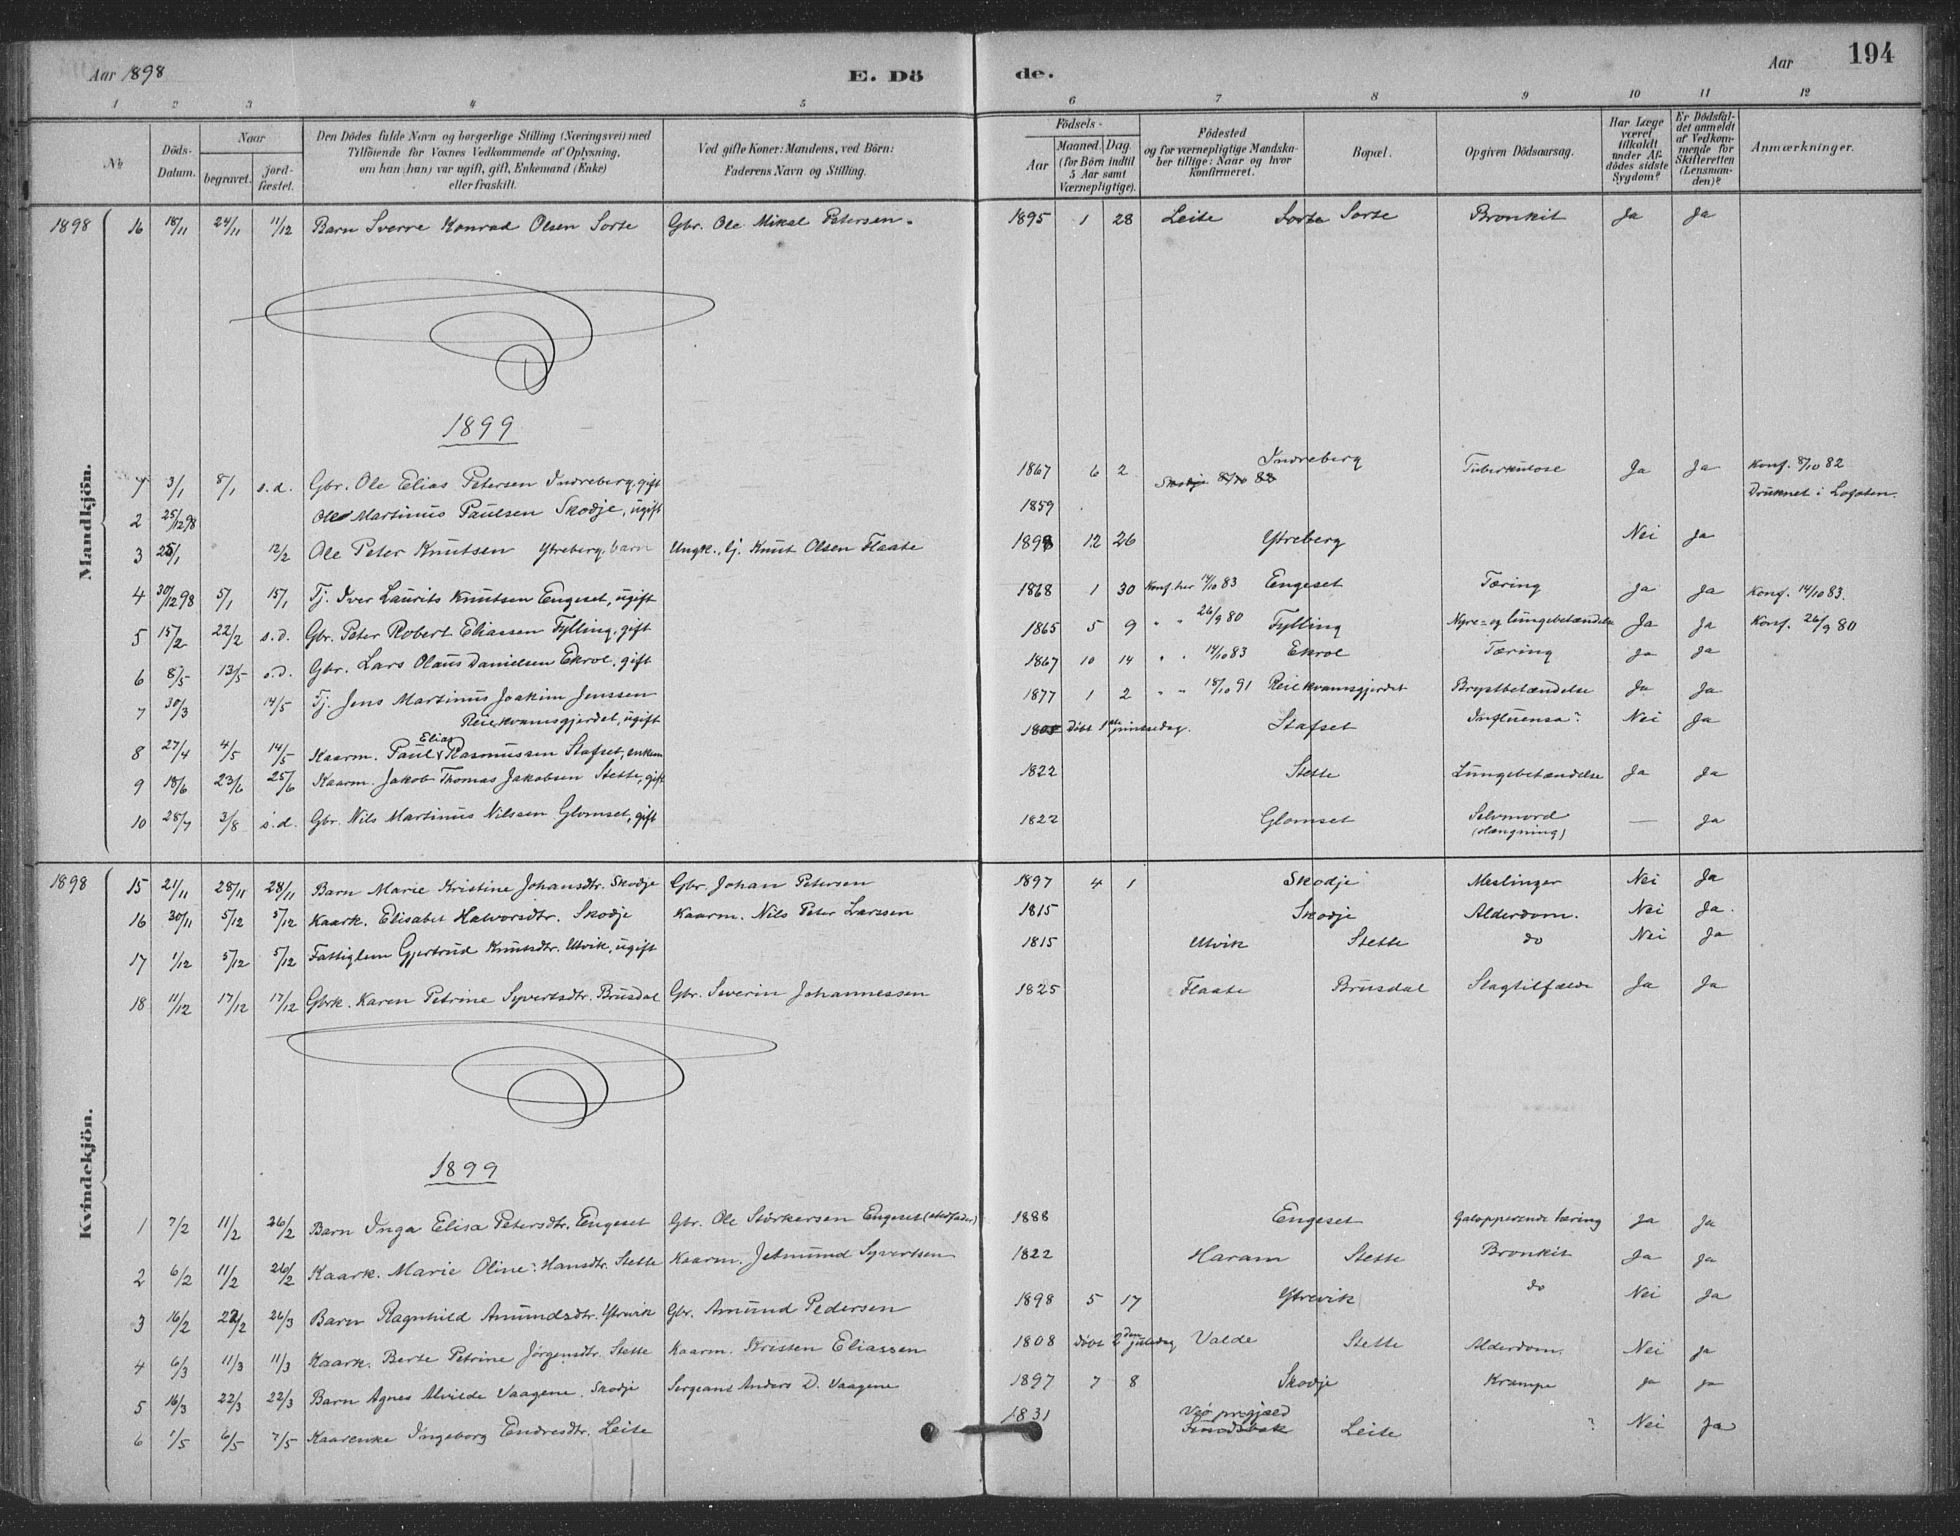 Aar 1898 E. Dö de. Aar 194
1 2 3 4 5 6 7 8 9 10 11 12
No
Döds-Datum.
Naar
begravet.
jord-fæstet.
Den Dödes fulde Navn og borgerlige Stilling (Næringsvei) med
Tilföiende for Voxnes Vedkommende af Oplysning,
om han (hun) var ugift, gift, Enkemand (Enke)
eller fraskilt.
Ved gifte Koner: Mandens, ved Börn:
Faderens Navn og Stilling.
Födsels-
Aar
Maaned. Dag.
(for Börn indtil
5 Aar samt
Værnepligtige).
Födested
og for værnepligtige Mandska-
ber tillige: Naar og hvor
konfirmeret.
Bopæl.
Opgiven Dödsaarsag.
Har Læge
været
tilkaldt
under Af-
dödes sidste
Sygdom?
Er Dödsfal-
det anmeldt
af Vedkom-
mende for
Skifteretten
(Lensman-
den)?
Anmærkninger.
Mandkjön.
1898 16 18/11 24/11 11/12 Barn Sverre Konrad Olsen Sorte Gbr. Ole Mikal Petersen. 1895 1 28 Leite Sorte Sorte Bronkit Ja Ja
1899
1 3/1 8/1 s.d. Gbr. Ole Elias Petersen Indreberg, gift 1867 6 2 Skodje 8/10 82 Indreberg Tuberkulose Ja Ja Konf. 8/10 82
2 25/12 98 Ole Martinus Paulsen Skodje, ugift 1859 Druknet i Lofoten.
3 25/1 12/2 Ole Peter Knutsen Ytreberg, barn Ungk., tj. Knut Olsen Flaate 1898 12 26 Ytreberg Nei Ja
4 30/12 98 5/1 15/1 Tj. Iver Laurits Knutsen Engeset, ugift 1868 1 30 Konf. her 14/10 83 Engeset Tæring Ja Ja Konf. 14/10 83.
5 15/2 22/2 s.d. Gbr. Peter Robert Eliassen Fylling, gift 1865 5 9 " " 26/9 80 Fylling Nyre- og lungebetændelse Ja Ja Konf. 26/9 80
6 8/5 13/5 s.d. Gbr. Lars Olaus Danielsen Ekrol, gift 1867 10 14 " " 14/10 83 Ekrol Tæring Ja Ja
7 30/3 14/5 Tj. Jens Martinus Joakim Jenssen
Reiekvamsgjerdet, ugift 1877 1 2 " " 18/10 91 Reiekvamsgjerdet Brystbetændelse Ja Ja
8 27/4 4/5 14/5 Kaarm. Paul Elias Rasmussen Stafset, enkem Döbt 1ste pintsedag. Stafset Influensa Nei Ja
9 18/6 23/6 25/6 Kaarm. Jakob Thomas Jakobsen Stette, gift 1822 Stette Lungebetændelse Ja Ja
10 28/7 3/8 s.d. Gbr. Nils Martinus Nilssen Glomset, gift 1822 Glomset Selvmord
(hængning) — Ja
Kvindekjön.
1898 15 21/11 28/11 28/11 Barn Marie Kristine Johansdtr. Skodje Gbr. Johan Petersen 1897 4 1 Skodje Meslinger Nei Ja
16 30/11 5/12 5/12 Kaark. Elisabet Halvorsdtr. Skodje Kaarm. Nils Peter Larssen 1815 Skodje Alderdom. Nei Ja.
17 1/12 5/12 5/12 Fattiglem Gjertrud Knutsdtr. Utvik, ugift 1815 Utvik Stette do Nei Ja
18 11/12 17/12 17/12 Gbrk. Karen Petrine Syvertsdtr. Brusdal Gbr. Severin Johannessen 1825 Flaate Brusdal Slagtilfælde Ja Ja
1899
1 7/2 11/2 26/2 Barn Inga Elisa Petersdtr. Engeset Gbr. Ole Störkersen Engeset (stedfader) 1888 Engeset Galopperende tæring Ja Ja
2 6/2 11/2 26/2 Kaark. Marie Oline Hansdtr. Stette Kaarm. Jetmund Syvertsen 1822 Haram Stette Bronkit Ja Ja
3 16/2 22/2 26/3 Barn Ragnhild Amundsdtr. Ytrevik Gbr. Amund Pedersen 1898 5 17 Ytrevik do Nei Ja
4 6/3 11/3 11/3 Kaark. Berte Petrine Jörgensdtr. Stette Kaarm. Kristen Eliassen 1808 döbt 2den juledag Valde Stette Alderdom. Nei Ja
5 16/3 22/3 22/3 Barn Agnes Alvilde Vaagene. Skodje Sergeant Anders D. Vaagene 1897 7 8 Skodje Krampe Ja Ja
6 1/5 6/5 7/5 Kaarenke Ingeborg Endresdtr. Leite 1831 Veö prgjæld Leite ? Nei Ja